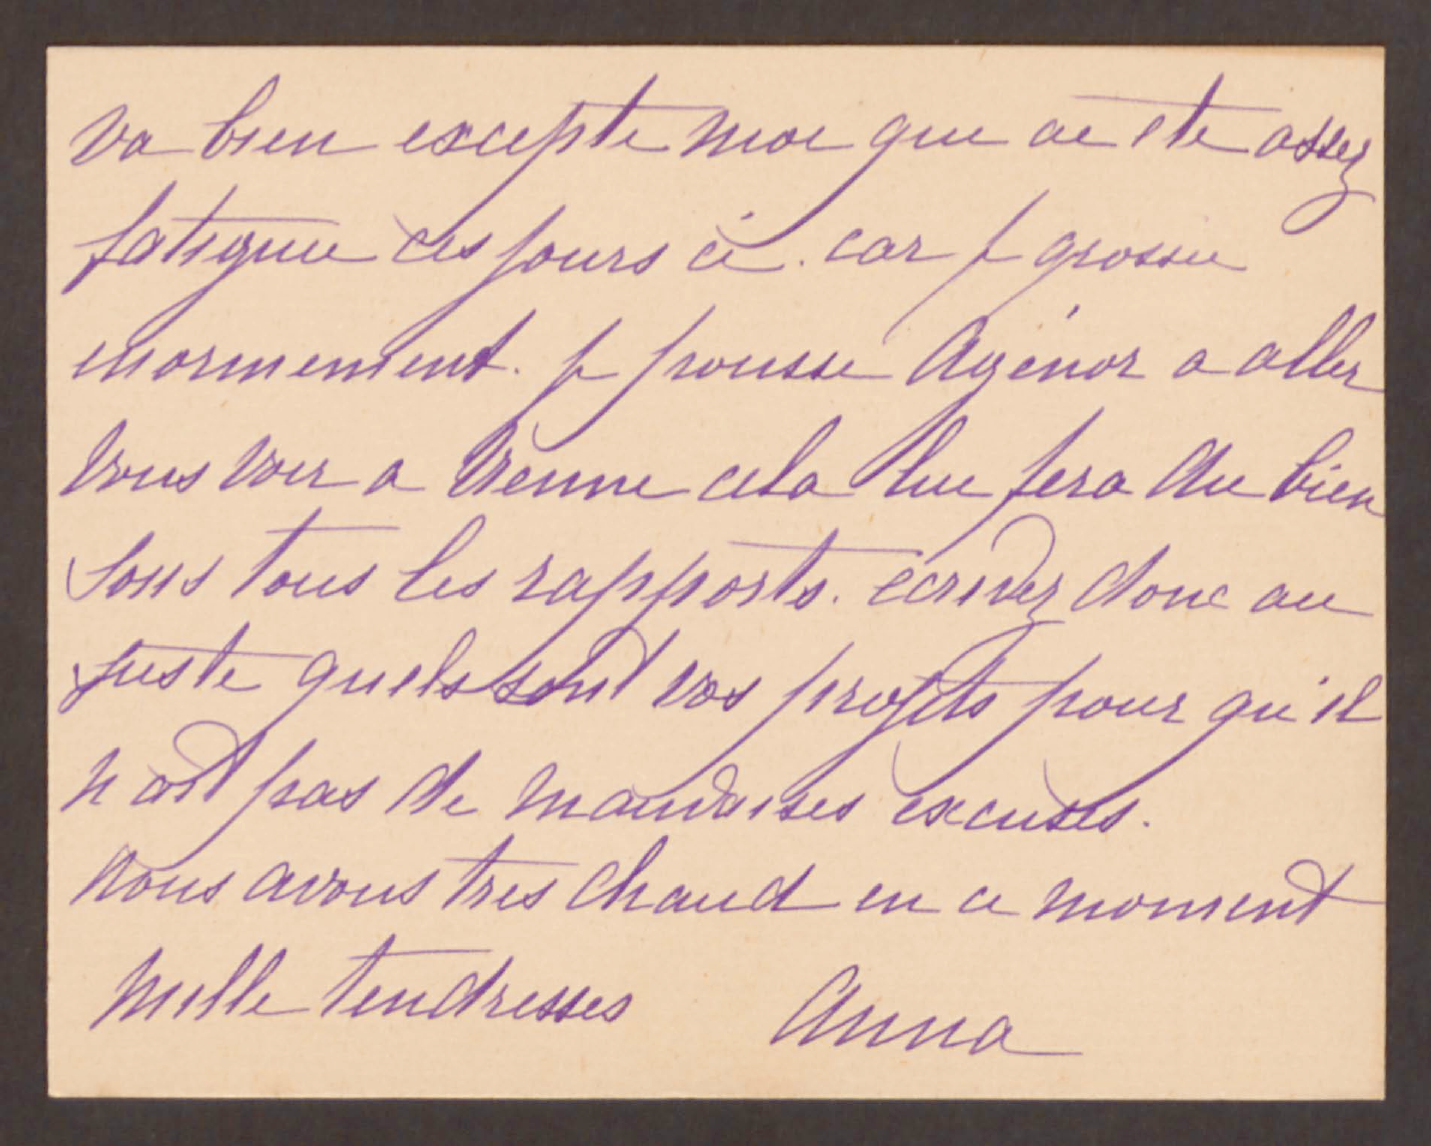 va bien excepte moi qui ai ete assez
fatiguee ces jours ci. car je grossis
enormement. je pousse Agénor a aller
vous voir a Vienne cela lui fera du bien
sous tous les rapports. ecrivez donc au
juste quels sont vos projets pour qu'il
n ait pas de mauvaises excuses.
Nous avons tres chaud en ce moment
Mille tendresses Anna